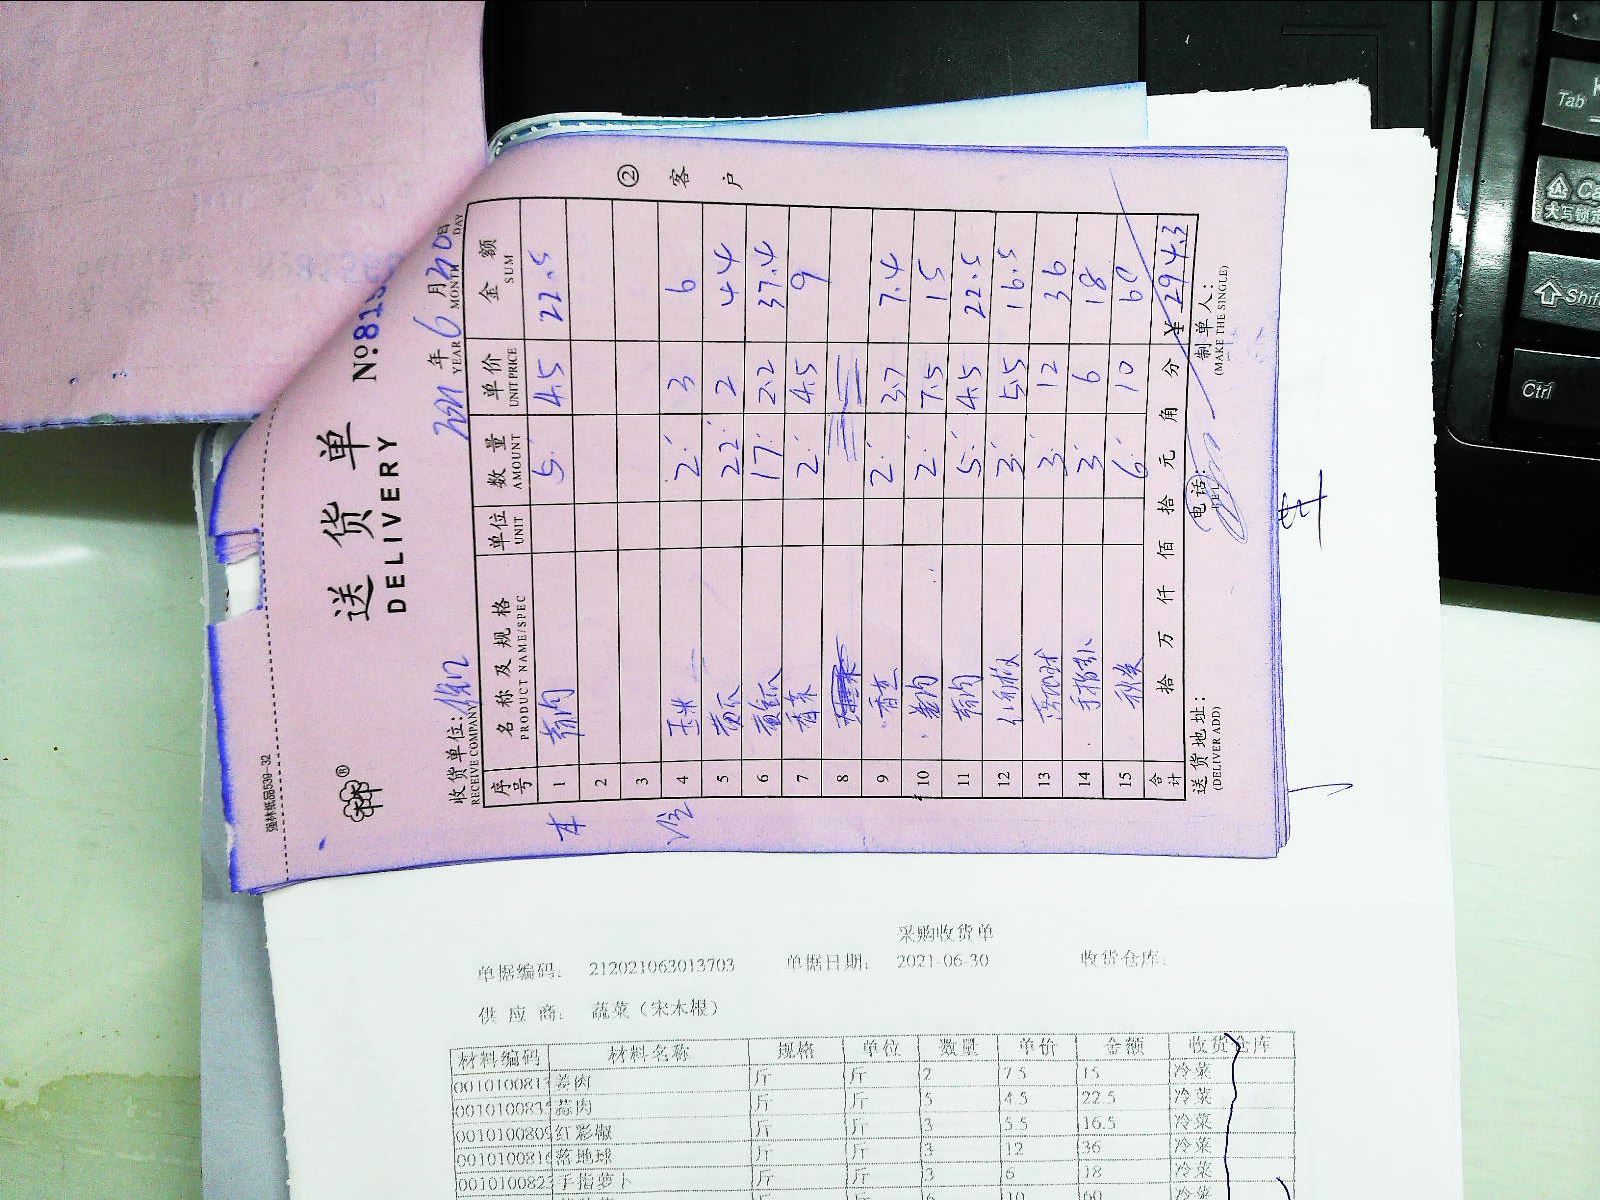 强林纸品539-32
送货单
DELIVERY
№:815
收货单位:
RECEIVE COMPANY
2021年6月30日
YEAR MONTH DAY
序号 名称及规格 PRODUCT NAME/SPEC 单位 UNIT 数量 AMOUNT 单价 UNIT PRICE 金额 SUM
1 蒜肉 5 4.5 22.5
2
3
4 玉米 2 3 6
5 黄瓜 22 2 44
6 17 2.2 37.4
7 香菜 2 4.5 9
8
9 2 3.7 7.4
10 姜肉 2 7.5 15
11 蒜肉 5 4.5 22.5
12 3 5.5 16.5
13 落地球 3 12 36
14 手指卜 3 6 18
15 秋葵 6 10 60
合计 拾 万 仟 佰 拾 元 角 分 ¥294.3
送货地址:
(DELIVER ADD)
电话:
TEL
制单人:
(MAKE THE SINGLE)
② 客户
采购收货单
单据编码: 212021063013703 单据日期: 2021-06-30 收货仓库:
供应商: 蔬菜(宋木根)
材料编码 材料名称 规格 单位 数量 单价 金额 收货仓库
001010081 姜肉 斤 斤 2 7.5 15 冷菜
001010083 蒜肉 斤 斤 5 4.5 22.5 冷菜
001010080 红彩椒 斤 斤 3 5.5 16.5 冷菜
001010081 落地球 斤 斤 3 12 36 冷菜
001010082 手指萝卜 斤 斤 3 6 18 冷菜
6 10 60 冷菜
Tab
大写锁定
Shift
Ctrl